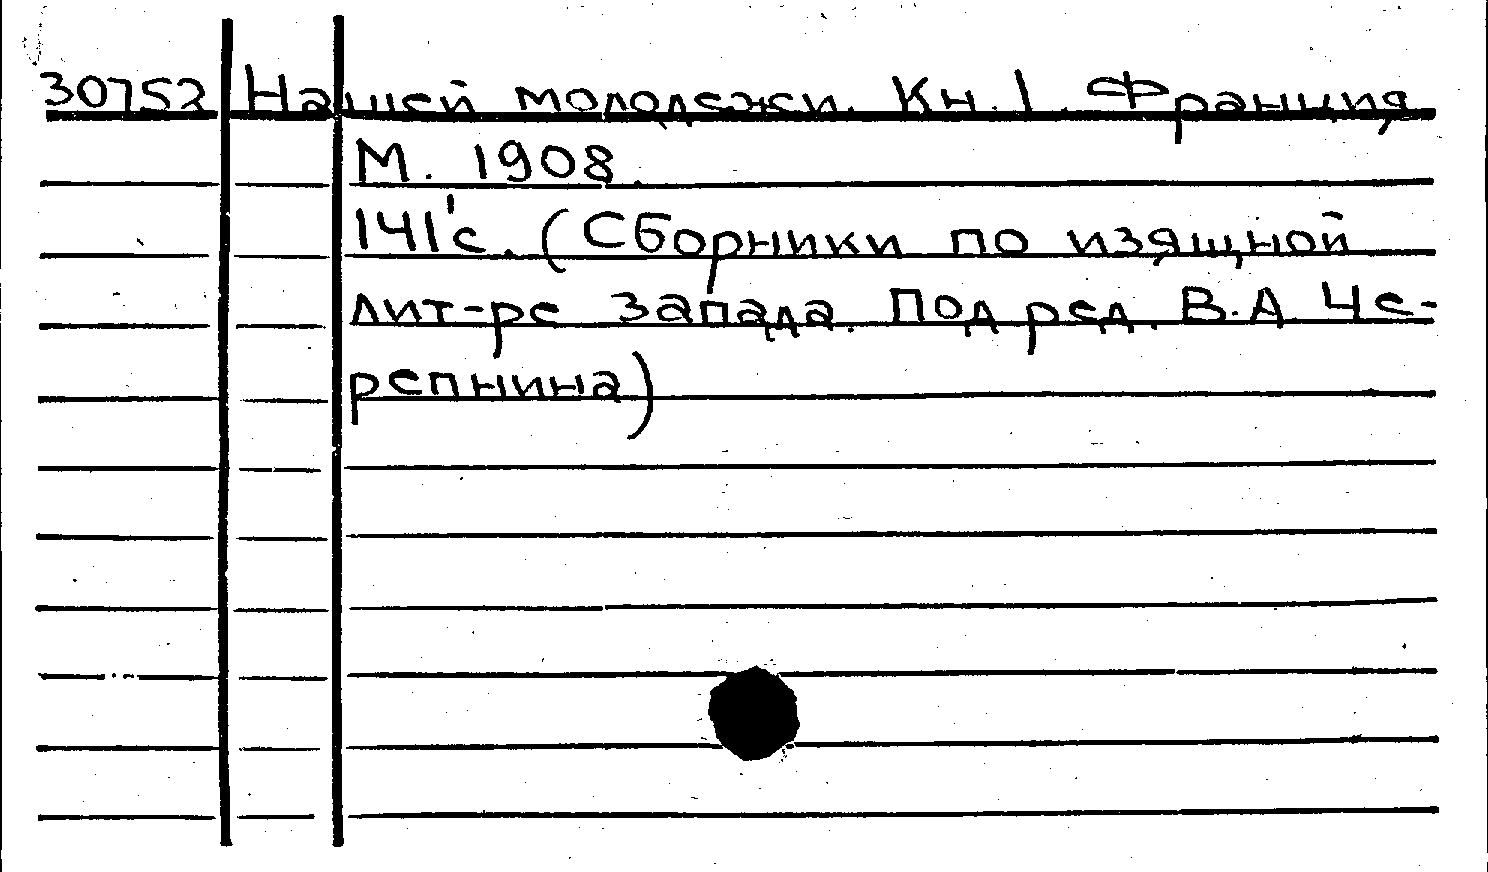 30752 Нашей молодежи. Кн. 1. Франция
М. 1908.
141'с. (Сборники по изящной
лит-ре Запада. Под ред. В.А. Че-
репнина)